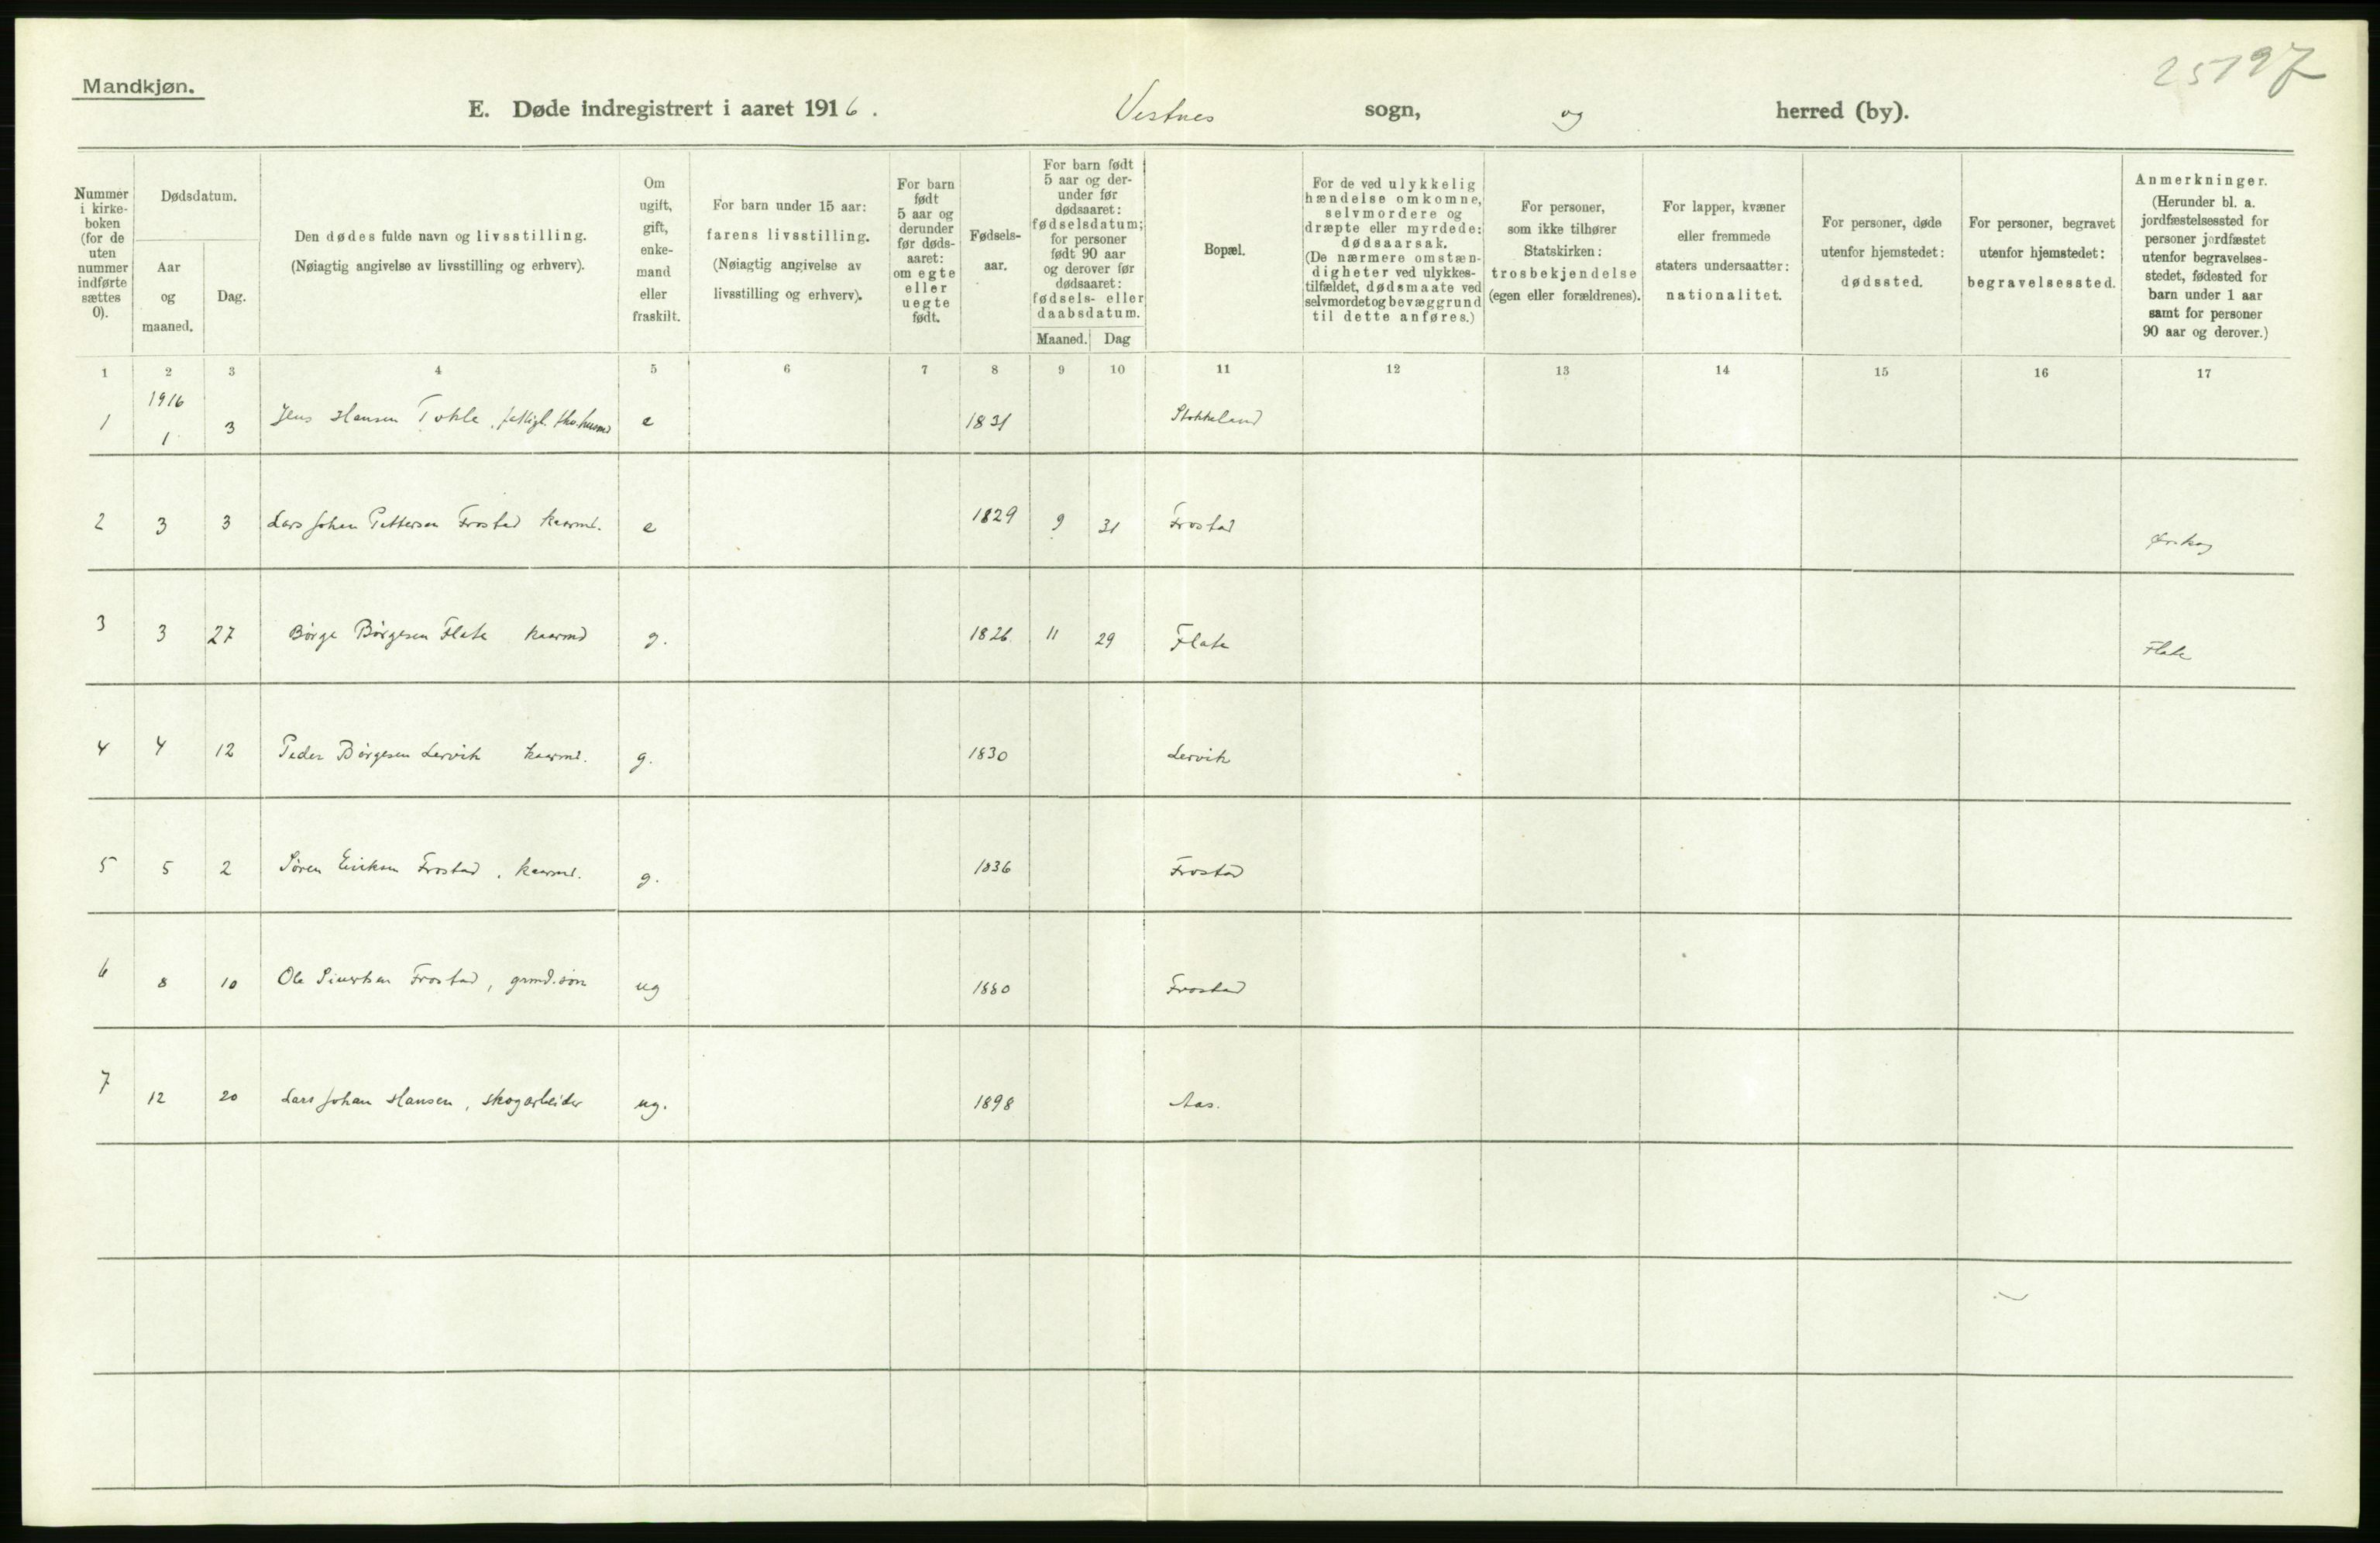 25197
Mandkjøn.
E. Døde indregistrert i aaret 1916. Vestnes sogn, og herred (by).
Nummer i kirke-boken (for de uten nummer indførte sættes 0).
Dødsdatum.
Aar og maaned.
Dag.
Den dødes fulde navn og livsstilling.
(Nøiagtig angivelse av livsstilling og erhverv).
Om ugift, gift, enke-mand eller fraskilt.
For barn under 15 aar: farens livsstilling. (Nøiagtig angivelse av livsstilling og erhverv).
For barn født 5 aar og derunder før døds-aaret: om egte eller uegte født.
Fødsels-aar.
For barn født 5 aar og der-under før dødsaaret: fødselsdatum; for personer født 90 aar og derover før dødsaaret: fødsels- eller daabsdatum.
Maaned. Dag
Bopæl.
For de ved ulykkelig hændelse omkomne, selvmordere og dræpte eller myrdede: dødsaarsak. (De nærmere omstæn-digheter ved ulykkes-tilfældet, dødsmaate ved selvmordet og bevæggrund til dette anføres.)
For personer, som ikke tilhører Statskirken: trosbekjendelse (egen eller forældrenes).
For lapper, kvæner eller fremmede staters undersaatter: nationalitet.
For personer, døde utenfor hjemstedet: dødssted.
For personer, begravet utenfor hjemstedet: begravelsessted.
Anmerkninger. (Herunder bl. a. jordfæstelsessted for personer jordfæstet utenfor begravelses-stedet, fødested for barn under 1 aar samt for personer 90 aar og derover.)
1 2 3 4 5 6 7 8 9 10 11 12 13 14 15 16 17
1916
1 1 3 Jens Hansen e 1831 Stokkeland
2 3 3 Lars Johan Pettersen Frostad kaarmd. e 1829 9 31 Frostad Ørskog
3 3 27 Børge Børgesen Flate kaarmd g. 1826 11 29 Flate Flate
4 4 12 Peder Børgesen Lervik kaarmd. g. 1830 Lervik
5 5 2 Søren Eriksen Frostad, kaarmd. g. 1836 Frostad
6 8 10 Ole Sivertsen Frostad, grmd.søn ug 1880 Frostad
7 12 20 Lars Johan Hansen, skogarbeider ug. 1898 Aas.